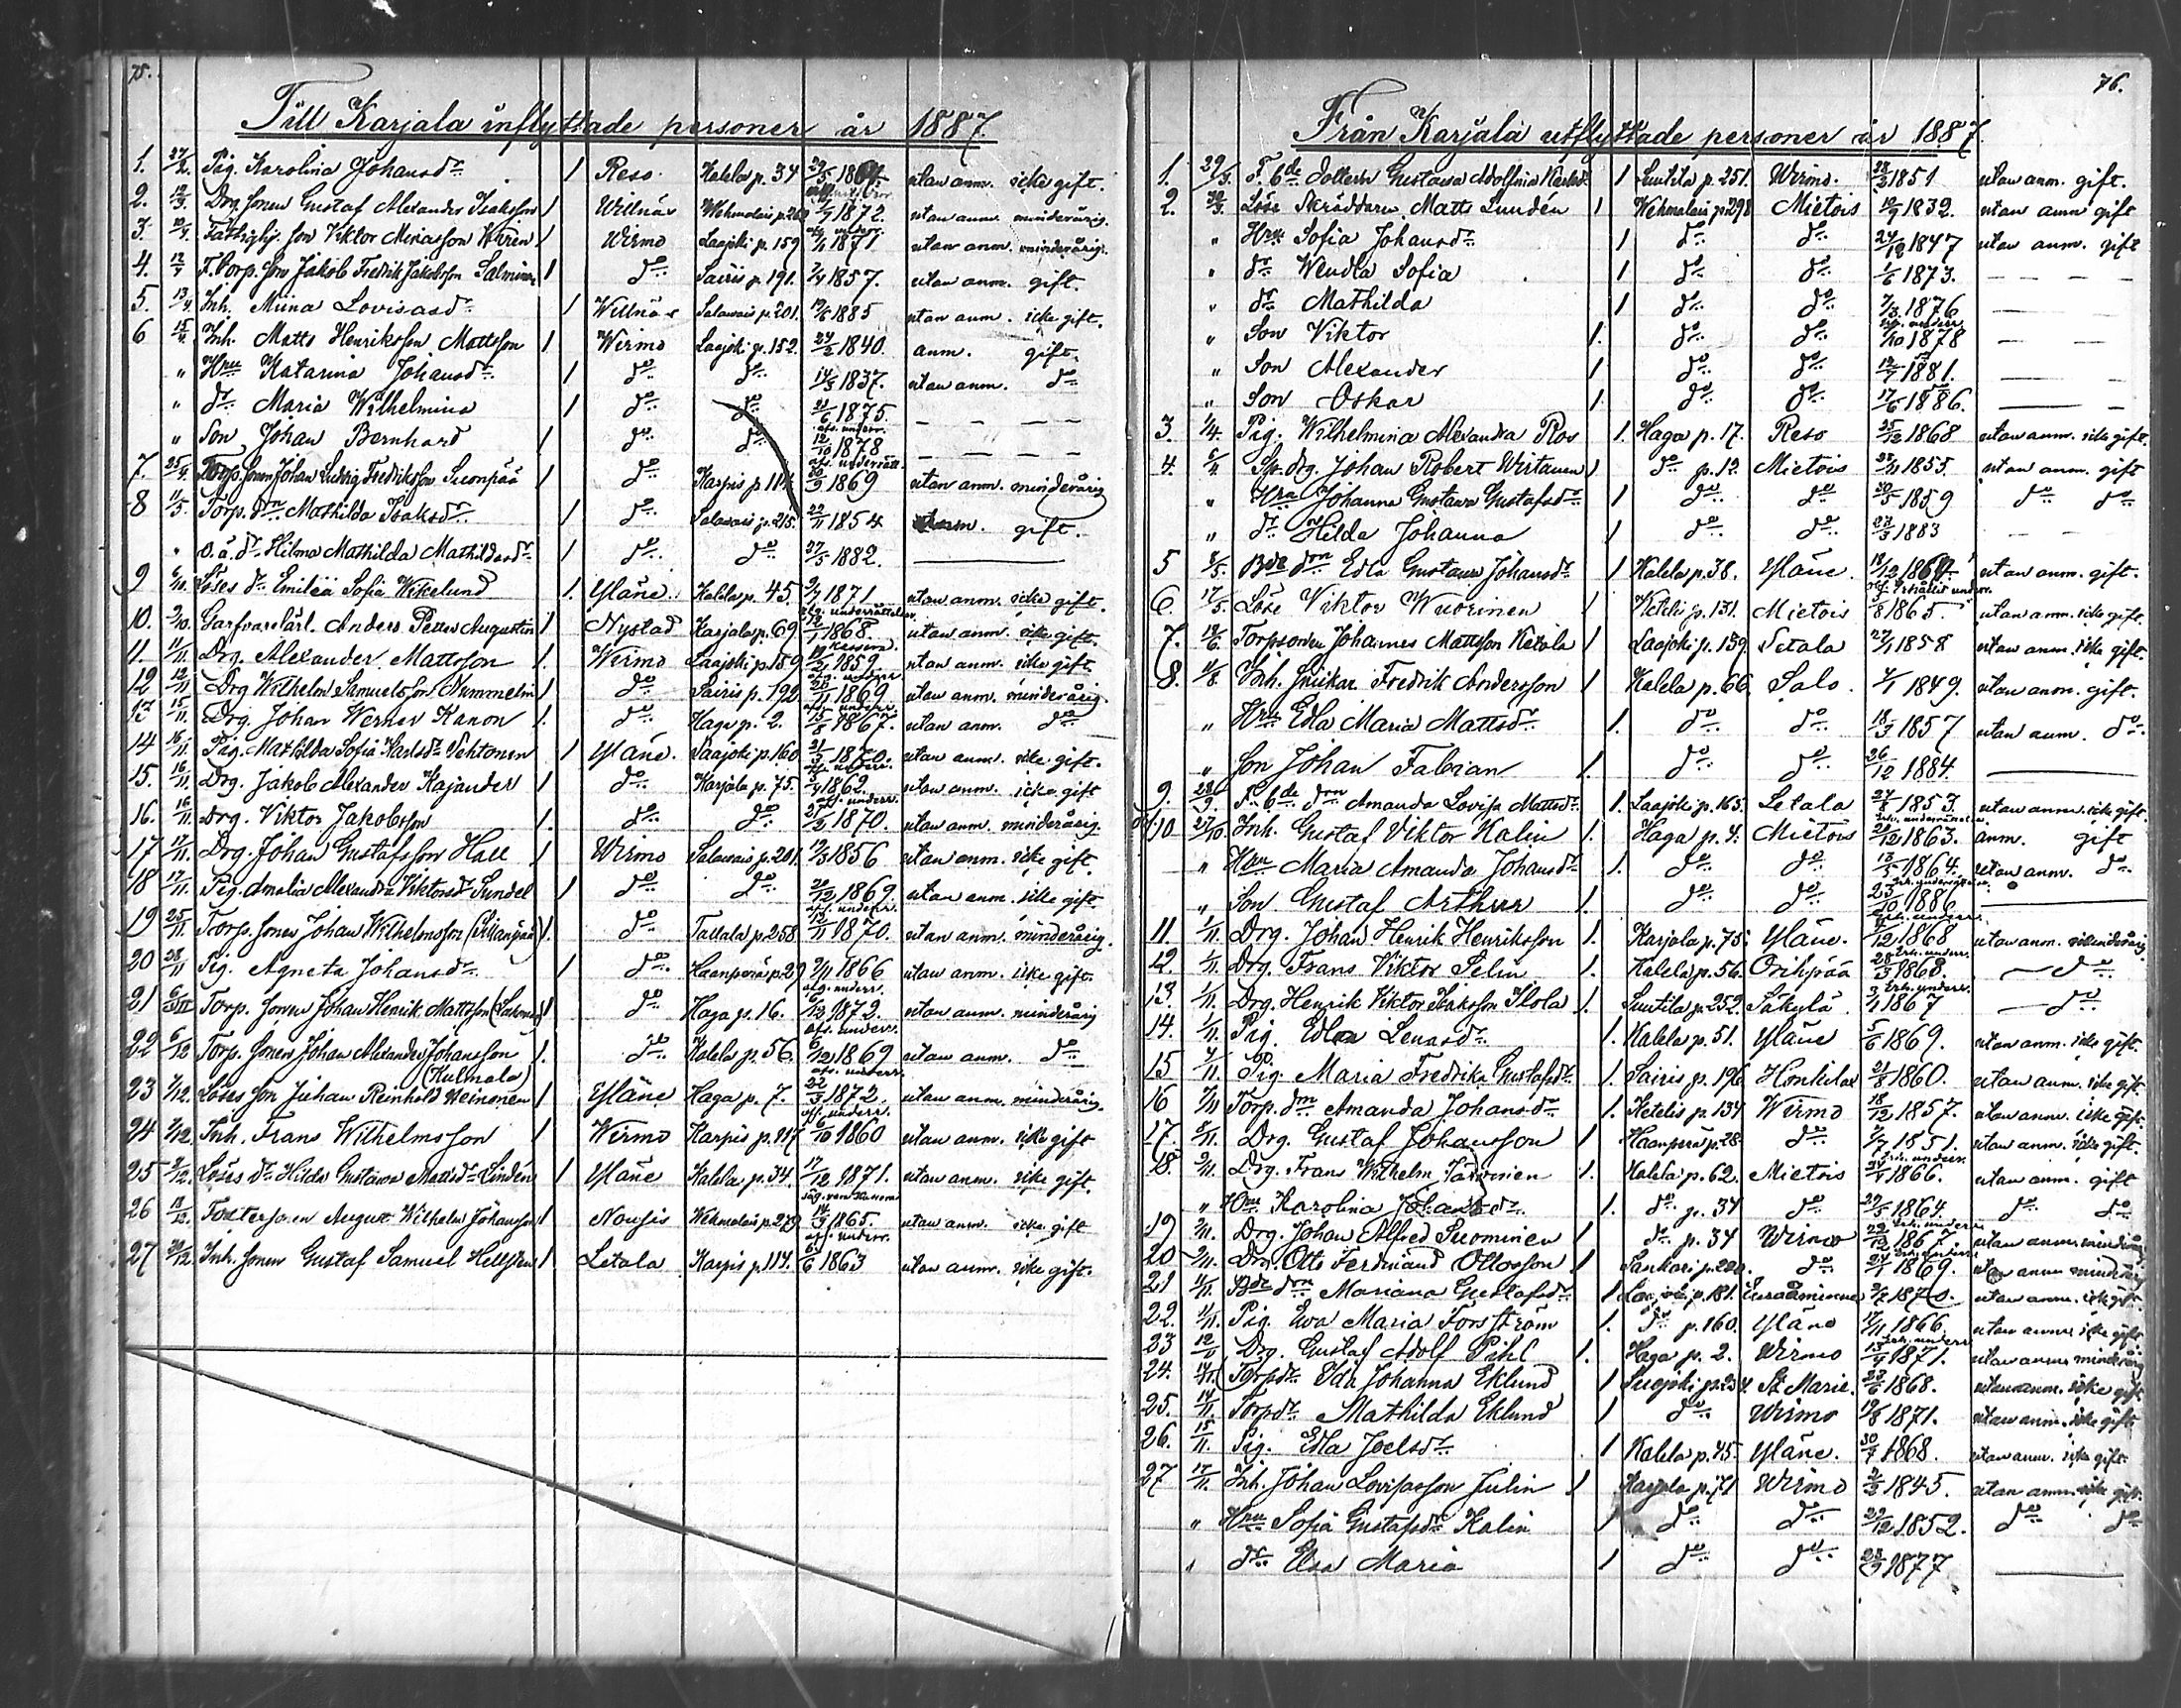 75.
Till Karjala inflyttade personer år 1887.
1. 27/2. Pig. Karolina Johansdr. 1 Reso. Kalela p. 34 29/5 1864. utan anm. icke gift.
2. 12/3. Drg. sonen Gustaf Alexander Isaksson 1 Willnäs Wehmalais p. 1872. utan anm. minderårig.
3. Fattighj. son Viktor Wiren 1 Wirmo Laajoki p. 159 1871 utan anm. minderårig.
4. 12/4 F. Torp. son Jakob Fredrik Jakobsson Salminen 1 do Sairis p. 191. 1857. utan anm. gift.
5. 13/4 Inh. Miina Lovisasdr. 1 Willnäs Salavais p. 201. 1885 utan anm. icke gift.
6 15/4 Inh. Matts Henriksson Mattsson 1 Wirmo Laajoki p. 152. 24/2 1840. anm. gift.
" Hru Katarina Johansdr. 1 do do 14/5 1837. utan anm. do
" dr Maria Wilhelmina 1 do do 1875. – – – –
" Son Johan Bernhard 1 do do 12/10 1878 – – – –
7. 25/4 Torp. sonen Johan Ludvig Fredriksson Suonpää 1 do Karpis p. 114. 1869 utan anm. minderårig
8 11/5. Torp. drn Mathilda Isaksdr. 1 do Salavais p. 215. 22/11 1854 anm. gift.
" o. ä. dr Hilma Mathilda Mathildasdr 1 do do 27/5 1882.
9 Löses dr Emilia Sofia Wikelund 1. Yläne. Kalela p. 45. 1871 utan anm. icke gift.
10. Garfvarelärl. Anders Petter Augustin 1 Nystad Karjala p. 69 1868. utan anm. icke gift.
11. 11/11 Drg. Alexander Mattsson 1. Wirmo Laajoki p. 159 1859. utan anm. icke gift.
12 12/11 Drg Wilhelm Samuelsson Nummelin 1 do Sairis p. 192 1869. utan anm. minderårig.
13 15/11. Drg. Johan Werner Kanon 1. do Haga p. 2. 15/8 1867. utan anm. do
14 16/11. Pig. Mathilda Sofia Karlsdr Lehtonen 1 Yläne. Laajoki p. 160 21/3 1870. utan anm. icke gift.
15. 16/11. Drg. Jakob Alexander Kajander 1 do Karjala p. 75. 1862. utan anm. icke gift
16. 16/11. Drg. Viktor Jakobsson 1. do do 1870. utan anm. minderårig.
17 17/11. Drg. Johan Gustafsson Hall 1 Wirmo Salavais p. 201. 1856 utan anm. icke gift.
18 17/11. Pig. Amalia Alexandra Viktorsdr Sundel 1 do do 1869. utan anm. icke gift.
19 25/11. Torp. sonen Johan Wilhelmsson 1. do Tallala p. 258. 12/11 1870. utan anm. minderårig.
20 28/11 Pig. Agneta Johansdr. 1 do Haanperä p. 29 1866 utan anm. icke gift.
21 Torp. sonen Johan Henrik Mattsson 1 do Haga p. 16. 1872. utan anm. minderårig
22 6/12 Torp. sonen Johan Alexander Johansson 1. do Kalela p. 56. 1869 utan anm. do
(Kulmala)
23 7/12. Löses son Juhan Reinhold Heinonen 1 Yläne Haga p. 7. 22/3 1872. utan anm. minderårig.
24 7/12. Inh. Frans Wilhelmsson 1 Wirmo Karpis p. 117 6/10 1860 utan anm. icke gift
25 Löses dr Hilda Gustava Mattsdr Linden 1 Yläne Kalela p. 34. 17/12 1871. utan anm. icke gift.
26 Fostersonen August Wilhelm Johansson 1 Nousis Wehmalais p. 279 14/9 1865. utan anm. icke gift
27 Inh. sonen Gustaf Samuel Hellsten 1 Letala Karpis p. 114. 1863 utan anm. icke gift.
76.
Från Karjala utflyttade personer år 1887.
1. 29/3. F. Bde dottern Gustava Adolfina 1 Suutila p. 251. Wirmo. 28/3 1851 utan anm. gift.
2. 30/3. Löse Skräddaren Matts Lunden 1 Wehmalais p. 298 Mietois 1832. utan anm gift
" Hru Sofia Johansdr 1 do do 24/12 1847 utan anm. gift
" dr Wendla Sofia 1 do do 1/6 1873. – – –
" dr Mathilda 1 do do 7/3 1876 – –
" Son Viktor 1. do do 1878 – –
" Son Alexander 1 do do 12/7 1881. – –
" Son Oskar 1. do do 17/6 1886. – –
3. 1/4. Pig. Wilhelmina Alexandra Ros 1. Haga p. 17. Reso 25/12 1868 utan anm. icke gift.
4. Sp. drg. Johan Robert Wirtanen 1 do p. 12. Mietois 1855. utan anm. gift
" Hru Johanna Gustava Gustafsdr 1 do do 30/5 1859 do do
" dr Hilda Johanna 1 do do 1883 – –
5 Bde drn Edla Gustava Johansdr 1 Kalela p. 38. Yläne. 1864. utan anm. gift.
6. 17/5. Löse Viktor Wuorinen 1 Ketelis p. 131. Mietois 1865. utan anm. icke gift.
7. Torpsonen Johannes Mattsson Ketola 1 Laajoki p. 159. Letala 1858 utan anm. icke gift.
8. Inh. Snickar. Fredrik Andersson 1 Kalela p. 66. Salo. 1849. utan anm. gift.
" Hru Edla Maria Mattsdr 1. do do 18/3 1857 utan anm. do
" Son Johan Fabian 1. do do 26/12 1884.
9. F. Bde drn Amanda Lovisa Mattsdr 1. Laajoki p. 163. Letala 1853. utan anm. icke gift.
10. 27/10. Inh. Gustaf Viktor Kalin 1. Haga p. 4. Mietois 1863. anm. gift
" Hru Maria Amanda Johansdr 1. do do 1864. utan anm. do
" Son Gustaf Arthur 1. do do 23/10 1886
11. 1/11. Drg. Johan Henrik Henriksson 1. Karjala p. 75. Yläne. 1868 utan anm. minderårig
12. 1/11. Drg. Frans Viktor Selin 1. Kalela p. 56. Oripää 28/3 1868. – do
13. 1/11. Drg. Henrik Viktor Isaksson Skola 1. Suutila p. 252. Säkylä. 1867 – do
14. 1/11. Pig. Edla Lenasdr 1. Kalela p. 51. Yläne 5/6 1869. utan anm. icke gift.
15 Pig. Maria Fredrika Gustafsdr. 1. Sairis p. 196 Honkilax 21/8 1860. utan anm. icke gift
16 7/11 Torp. drn Amanda Johansdr 1. Ketelis p. 134 Wirmo 18/12 1857. utan anm. icke gift.
17. 8/11. Drg. Gustaf Johansson 1 Haanperä p. 28. do 1851. utan anm. icke gift.
18. 9/11. Drg. Frans Wilhelm Jalonen 1. Kalela p. 62. Mietois 1866. utan anm. gift
" Hru Karolina Johansdr 1. do p. 34 do 29/5 1864. do do
19 Drg. Johan Alfred Suominen 1 do p. 34 Wirmo 1867. utan anm. minderårig
20 Drg. Otto Ferdinand Ottosson 1 Sankari p. 220. do 1869. utan anm minderårig
21 Bde drn Mariana Gustafsdr 1 p. 181. Euraåminne 1870. utan anm. icke gift.
22. 11/11. Pig. Eva Maria Forsström 1. do p. 160. Yläne 1866. utan anm. icke gift.
23 12/11 Drg. Gustaf Adolf Pihl 1. Haga p. 2. Wirmo 1871. utan anm. minderårig
24. 14/11. Torpdr. Ida Johanna Eklund 1 Suojoki p. 254. St Marie. 1868. utan anm. icke gift.
25. 14/11. Torpdr. Mathilda Eklund 1 do Wirmo 19/8 1871. utan anm. icke gift.
26. 15/11. Pig. Edla Joelsdr. 1 Kalela p. 45. Yläne. 1868. utan anm. icke gift.
27 17/11. Inh. Johan Lovisasson Julin 1 Karjala p. 71 Wirmo 1845. utan anm. icke gift.
" Hru Sofia Gustafsdr Kalin 1 do do 29/12 1852. do do
" dr Elsa Maria 1 do do 23/9 1877.